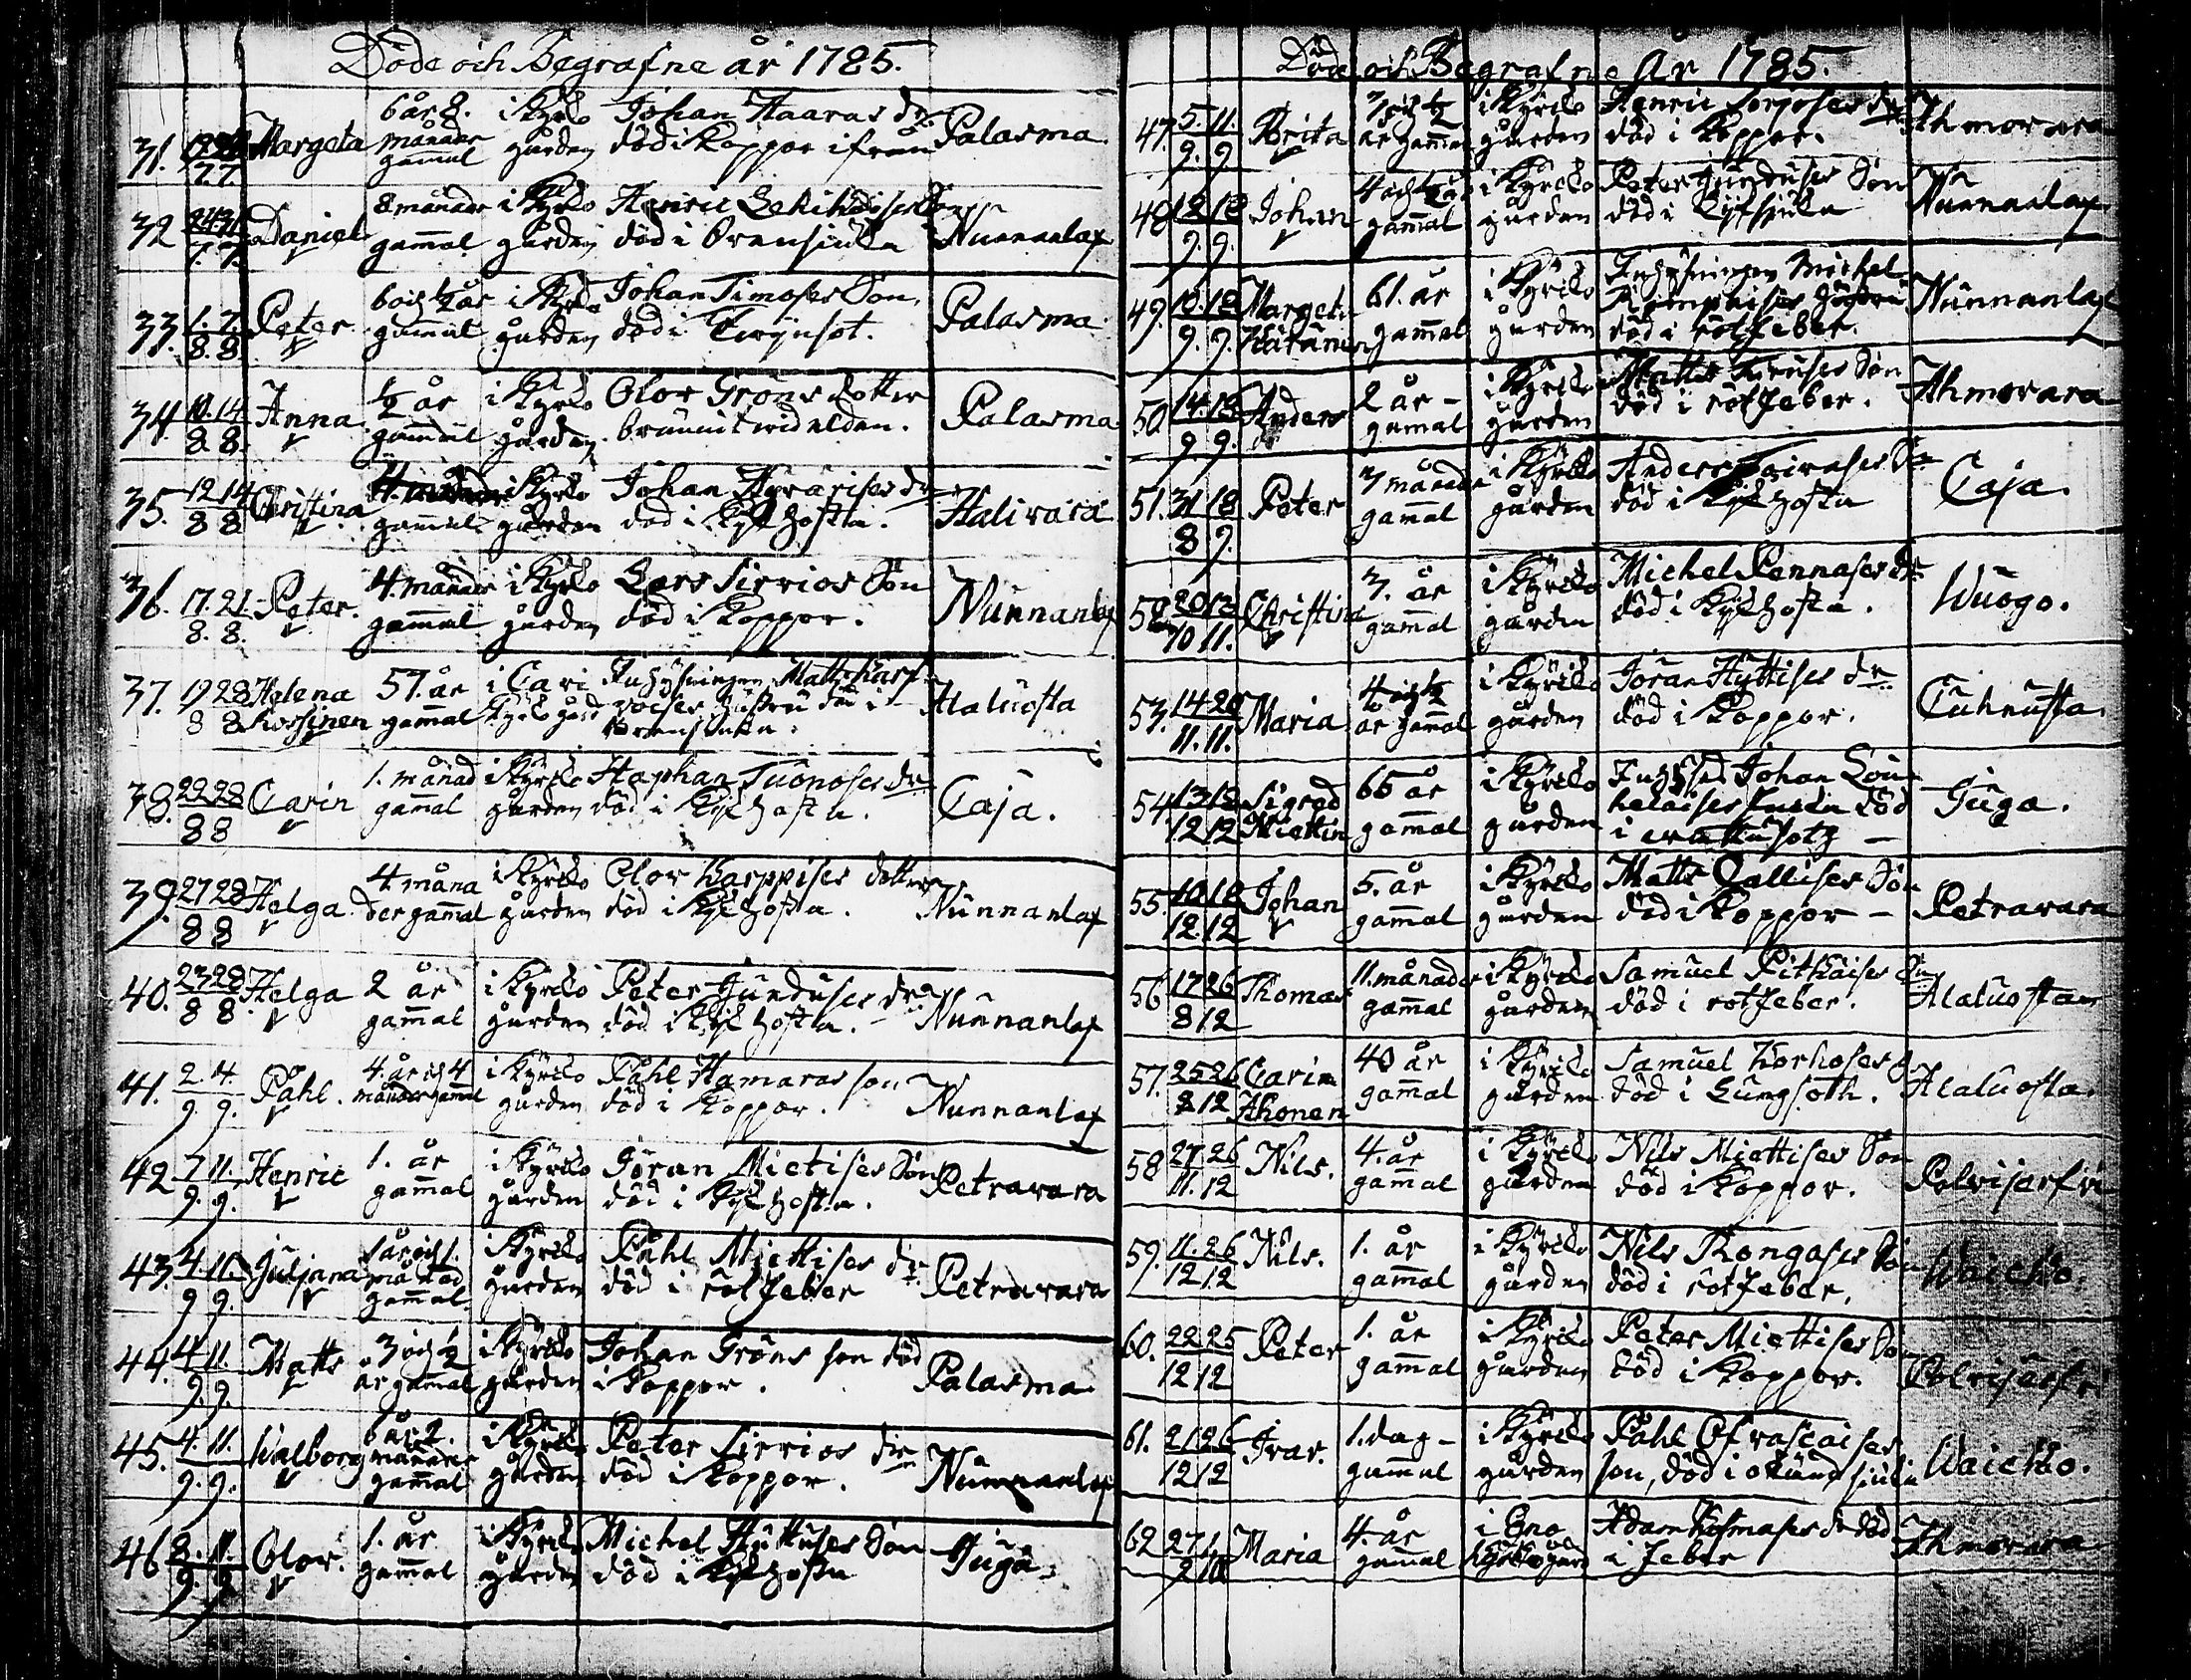 Döde och Begrafne år 1785.
31. Margeta 6 år 8. i Kyrko Johan Haaras dr. Palasma
7. 7. månader gammal gården död i Koppor ifrån
32 24 31 Daniel 8 månader i Kyrko Henric Nunnanlax
7. 7. gammal gården död i Brensiuka
33. 1. 7. Peter 6 och ½ år i Kyrko Johan Timoses Son, Palasma
8. 8. gammal gården död i
34. 10. 14 Anna ½ år i Kyrko Olov Gröns dotter Palasma
8. 8. gammal gården. brunnit vid elden.
35. 12 14 Christina i Kyrko Johan dr Halivara
8 8 gammal gården död i Kyk hosta.
36. 17. 21. Peter. 4. månader i Kyrko Lars Sirrios Son Nunnanlax
8. 8. gammal gården död i Koppor.
37. 19 28 Helena 57. år i Cavi Inhysningen Matts Alaluosta
8 8 Kossinen gammal Kyrko gård hustru död i
38. 22 28 Carin 1. månad i Kyrko Staphan Tuonoses dr Caja.
8 8 gammal gården död i Kyk hosta.
39. 27 28 Helga. 4. måna i Kyrko Olov Karppises dotter Nunnanlax
8 8 der gammal gården död i Kyk hosta.
40. 23 28 Helga 2 år i Kyrko Peter Junduses dr Nunnanlax
8 8. gammal gården död i Kyk hosta.
41. 2. 4. Påhl. 4. år och 4 i Kyrko Påhl Hamaras son Nunnanlax
9. 9. månader gammal gården död i Koppor.
42 7 11. Henric 1. år i Kyrko Jöran Mietises Son Petravara
9. 9. gammal gården död i Kyk hosta.
43. 4. 11. Juljana 1 år och 1. i Kyrko Påhl Miettises dr. Petravara
9 9. månad gammal. gården död i rötfeber
44. 4. 11. Matts 3 och ½ i Kyrko Johan Gröns son död Palasma
9. 9. år gammal gården i Koppor.
45. 4. 11. Walborg 6 år 2. i Kyrko Peter Sirrios dr Nunnanlax
9. 9. månader gammal gården död i Koppor.
46 8. 11. Olov. 1. år i Kyrko Michel Huttuses Son Juga.
9. 9. gammal gården död i Kyk hosta
Döde och Begrafne År 1785.
47. 5. 11. Brita 7 och ½ i Kyrko Henric dr Ahmovara
9. 9 år gammal gården död i Koppor.
48 12 18 Johan 4 och ½ år i Kyrko Peter Junduses Son Nunnanlax
9. 9. gammal gården död i
49. 10. 18 Margeta 61. år i Kyrko Inhysningen Michel Nunnanlax
9. 9. gammal gården hustru
död i rötfeber.
50 14. 18 Anders 2 år - i Kyrko Matts Son Ahmovara
9. 9. gammal gården död i rötfeber.
51. 31 18 Peter 7 månader i Kyrko Anders Toivases Son Caja.
8 9. gammal gården död i Kyk hosta
52 20 13 Christina 7. år i Kyrko Michel Pennases dr Wuogo.
10 11. gammal gården död i Kyk hosta.
53. 14 20 Maria 4 och ½ i Kyrko Jöran Hyttises dr Cuhnusta.
11. 11. år gammal gården död i Koppor.
54. 13 18 Sigred 65 år i Kyrko Inhyses Johan Lou Juga.
12 12 Miettin gammal gården helaises hustru död
i
55. 10 18 Johan 5. år i Kyrko Matts Callises Son Petravara
12. 12 gammal gården död i Koppor -
56 17 26 Thomas 11. månader i Kyrko Samuel Pitkäises Son Alaluosta
8 12 gammal gården död i rötfeber.
57. 25 26 Carin 40 år i Kyrko Samuel Korhoses Alaluosta.
8 12 Ahonen gammal gården död i Lungsoth.
58 27 26 Nils. 4. år i Kyrko Nils Miettises Son Polvijerfvi
11. 12 gammal gården död i Koppor.
59. 11. 26 Nils. 1. år i Kyrko Nils Rongases Son Waicko.
12 12 gammal gården död i rötfeber.
60. 22 25 Peter 1. år i Kyrko Peter Miettises Son Polvijerfvi
12 12 gammal gården död i Koppor.
61. 21 26 Ivar. 1. dag - i Kyrko Påhl Ofvascaises Waicko.
12 12 gammal gården son, död i okänd siuka
62 27 1. Maria 4. år i Eno Adam dr död Ahmovara
9 10 gammal Kyrko gård i feber